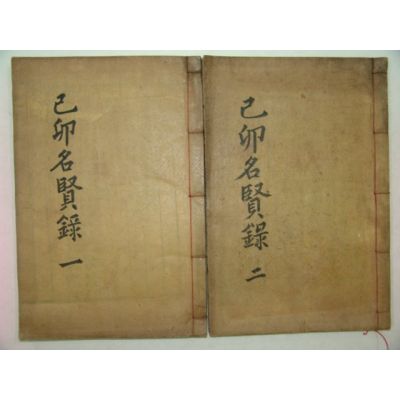 己卯名賢錄 一
己卯名賢錄 二